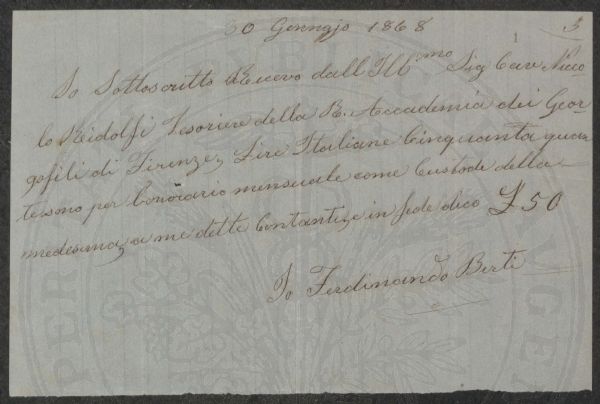 30 Gennajo 1868
1
3
Io Sottoscritto Ricevo dall Ill.mo Sig Cav Nicco
lo Ridolfi Tesoriere della R. Accademia dei Geor-
gofili di Firenze, Lire Italiane Cinquanta quan
te sono per l'onorario mensuale come Custode della
medesima, a me dette Contanti, e in fede dico £ 50
Io Ferdinando Berti